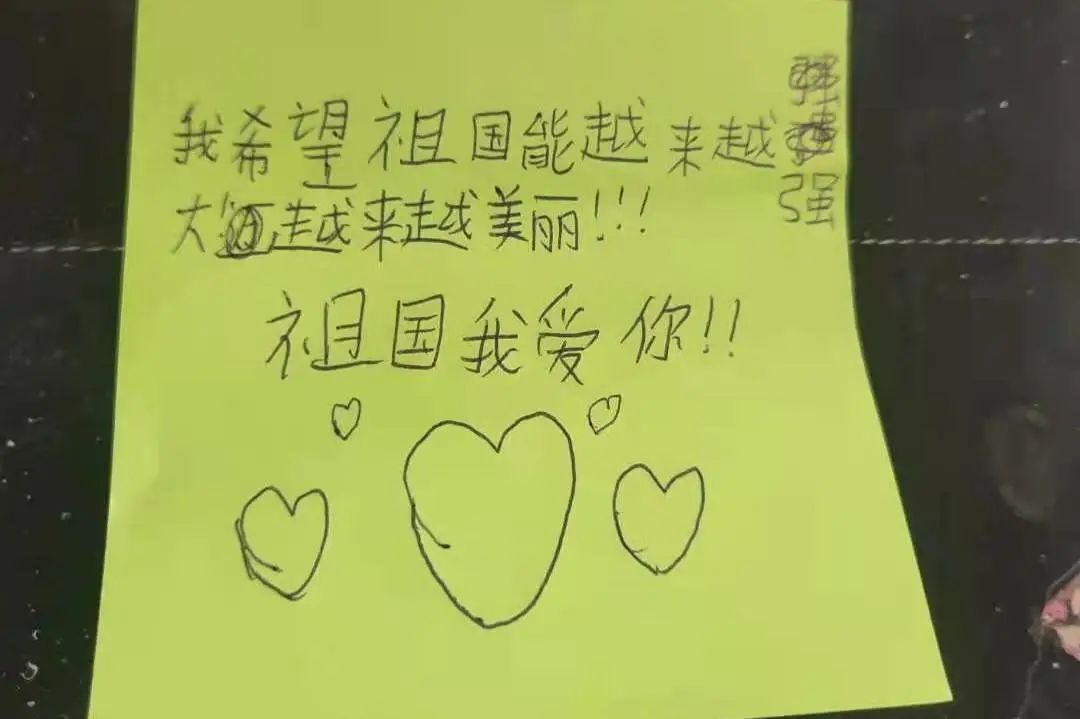 我希望祖国能越来越强
大越来越美丽!!!
祖国我爱你!!